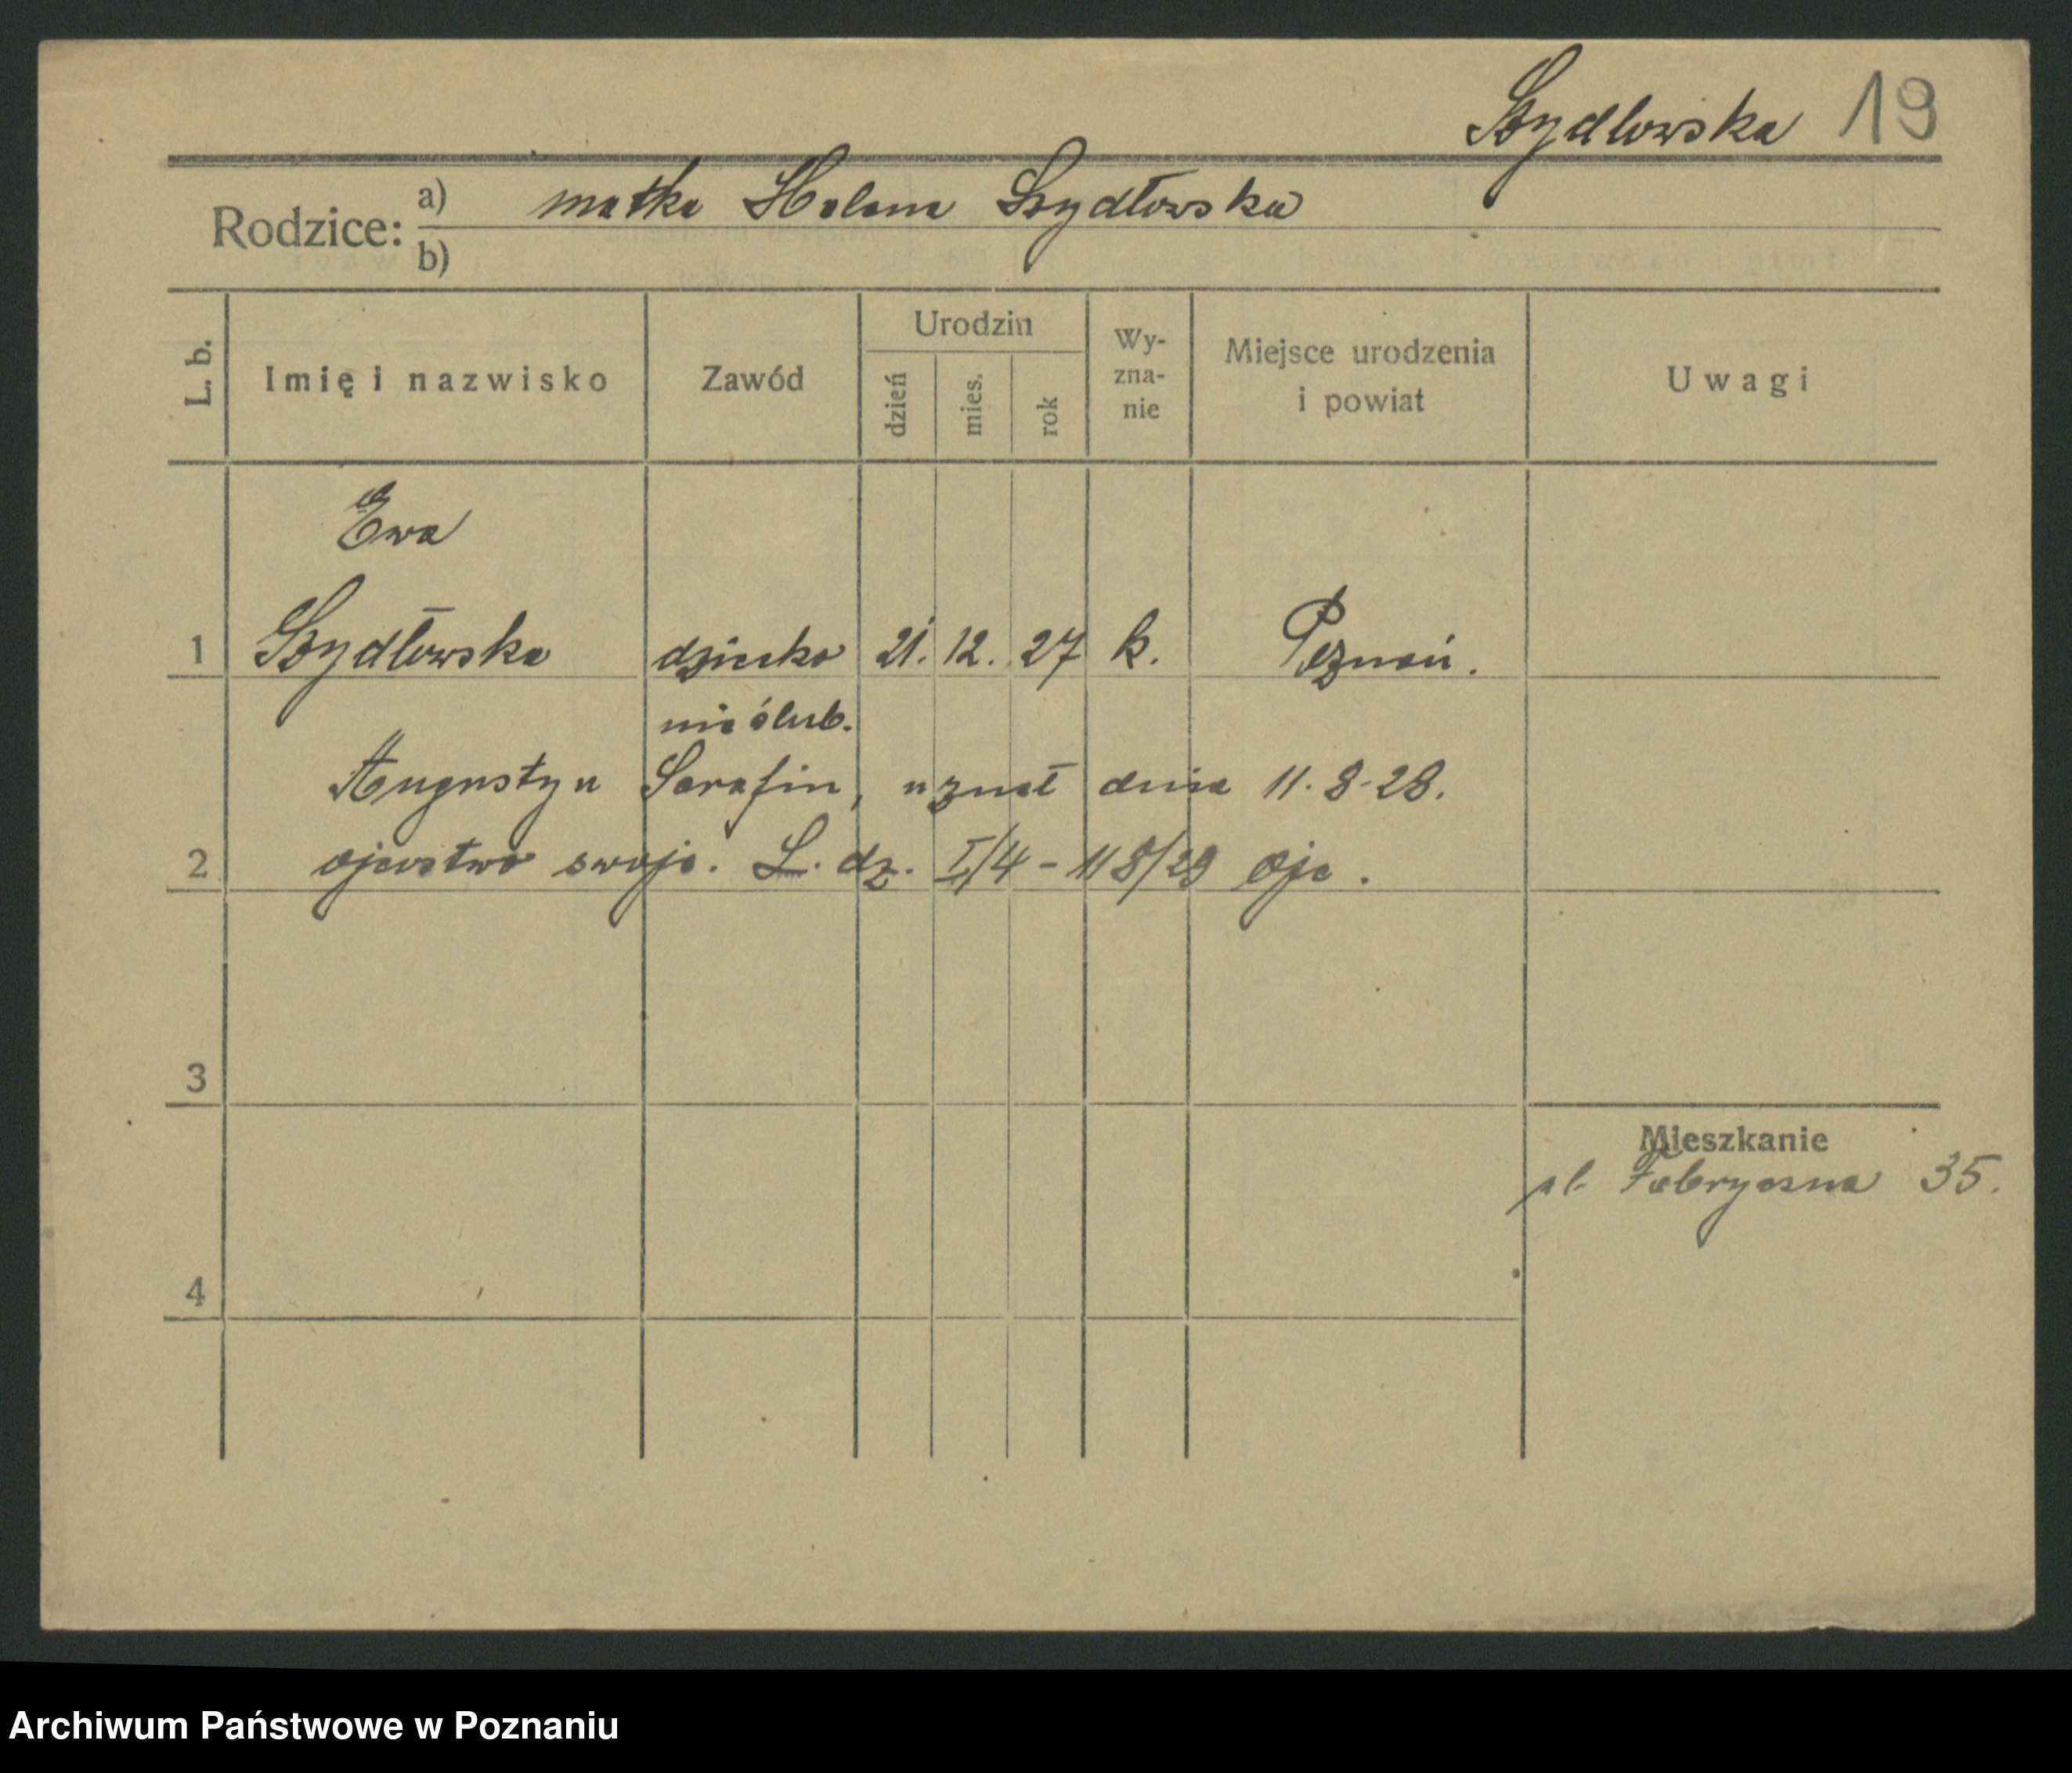 Szydlowska 19
Rodzice: a) matka Helena Szydłowska
b)
L. b. Imię i nazwisko Zawód Urodzin dzień mies. rok Wy-zna-nie Miejsce urodzenia i powiat Uwagi
Ewa
1 Szydłowska dziecko 21. 12. 27 k. Poznań.
nieślub.
Augustyn Serafin, uznał dnia 11.8.28.
2 ojcostwo swoje. L. dz. I/4 - 118/29 Ojc.
3
Mieszkanie
ul. Fabryczna 35.
4
Archiwum Państwowe w Poznaniu